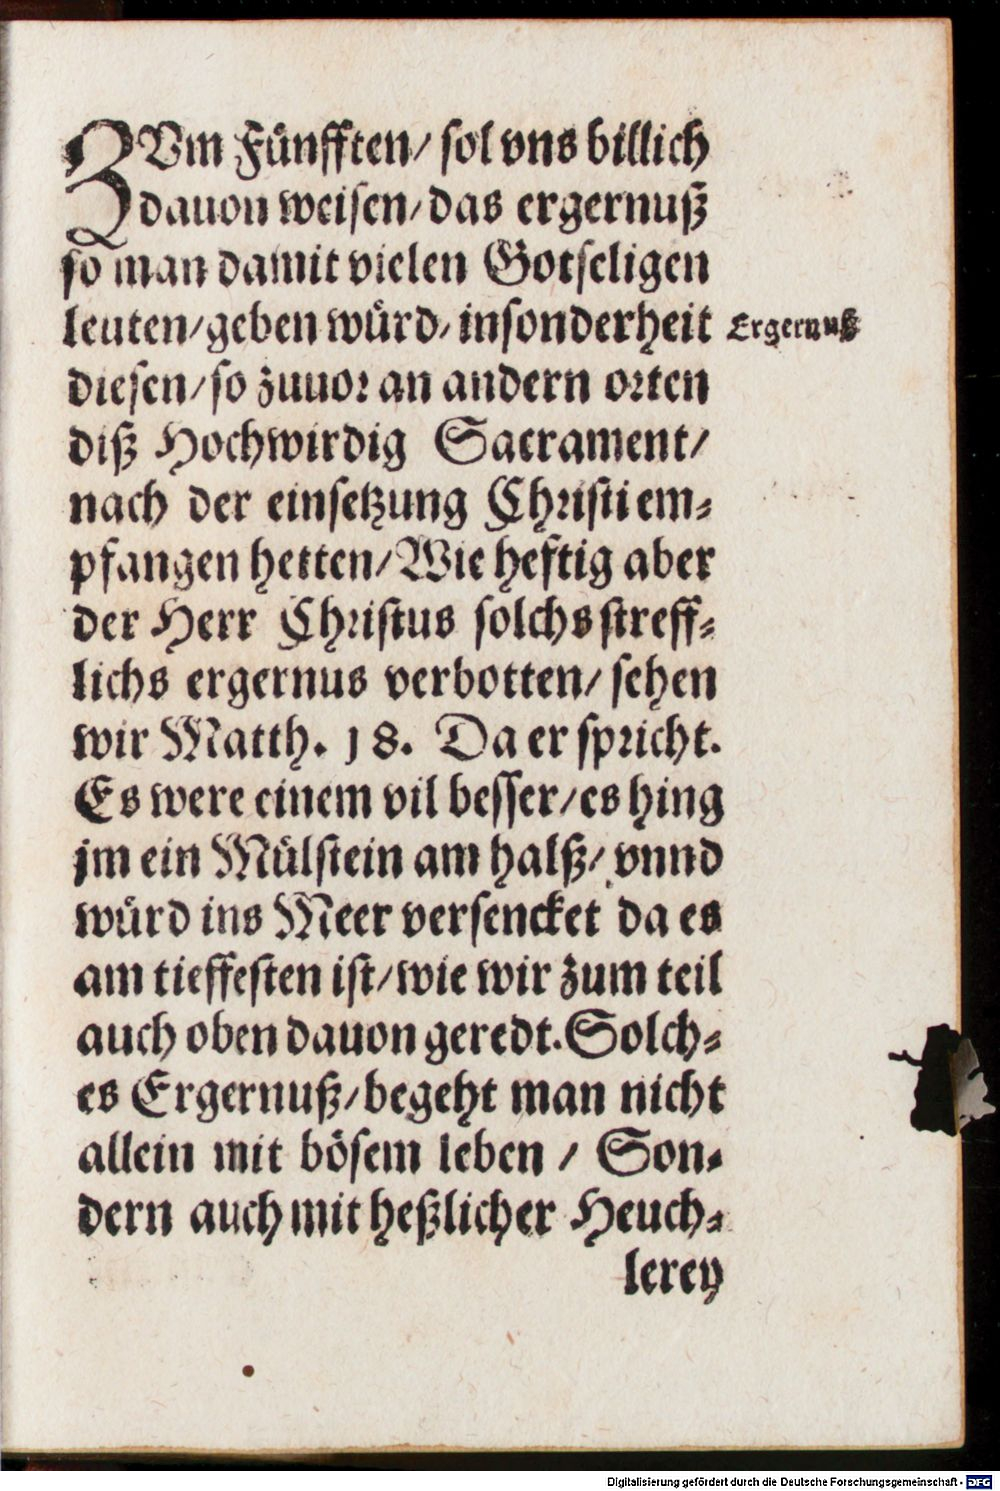 ZVm Fünfften/ sol vns billich
dauon weisen/ das ergernuß
so man damit vielen Gotseligen
leuten/ geben würd/ insonderheit
Ergernuß
diesen/ so zuuor an andern orten
diß Hochwirdig Sacrament/
nach der einsetzung Christi em-
pfangen hetten/ Wie heftig aber
der Herr Christus solchs streff-
lichs ergernus verbotten/ sehen
wir Matth. 18. Da er spricht.
Es were einem vil besser/ es hing
jm ein Mülstein am halß/ vnnd
würd ins Meer versencket da es
am tieffesten ist/ wie wir zum teil
auch oben dauon geredt. Solch-
es Ergernuß/ begeht man nicht
allein mit bösem leben / Son-
dern auch mit heßlicher Heuch-
lerey
Digitalisierung gefördert durch die Deutsche Forschungsgemeinschaft - DFG